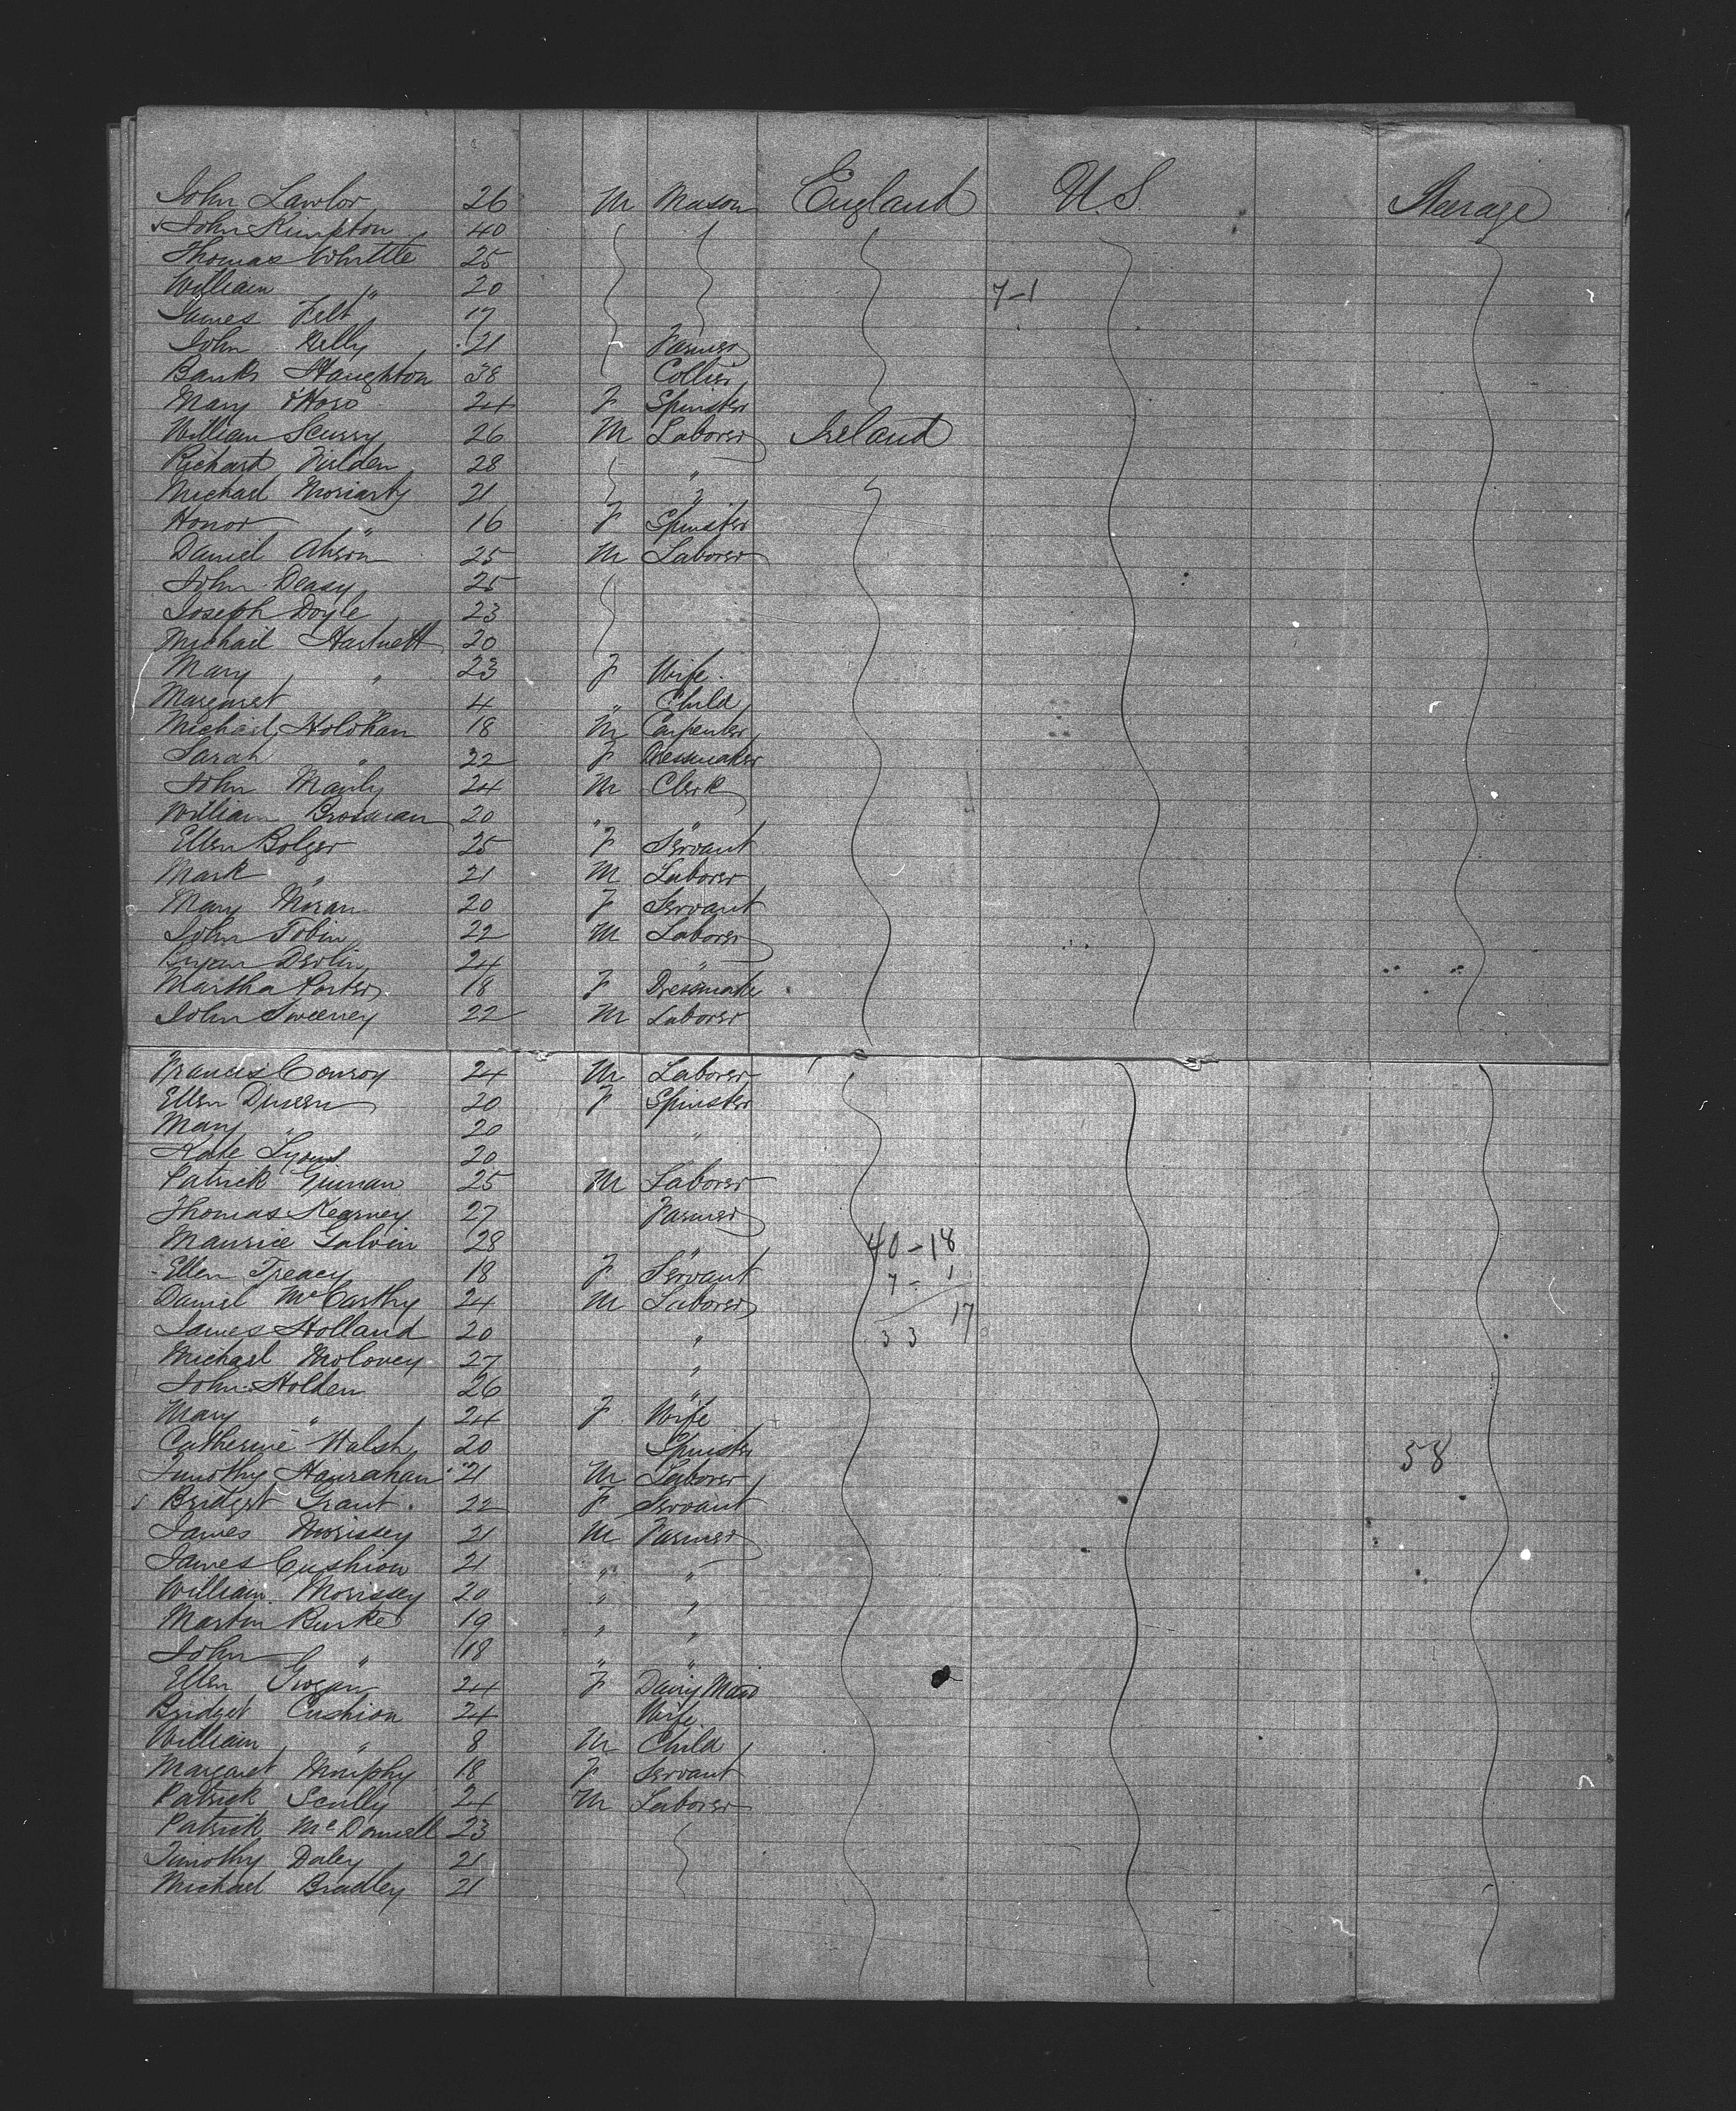 John Lawlor 26 M Mason England U.S. Steerage
John Kimpton 40
Thomas Whittle 25
William " 20 7-1
James Felt 17
John Kelly 21 Farmer
Banks Haughton 38 Collier
Mary 24 F Spinster
William Scurry 26 M Laborer Ireland
Richard Fielden 28 "
Michael Moriarty 21 "
Honor " 16 F Spinster
Daniel Ahern 25 M Laborer
John Deasy 25
Joseph Doyle 23
Michael Hartnett 20
Mary " 23 F Wife
Margaret 4 " Child
Michael Holohan 18 M Carpenter
Sarah " 22 F Dressmaker
John Manly 24 M Clerk
William Brosnan 20 " "
Ellen Bolger 25 F Servant
Mark " 21 M Laborer
Mary Moran 20 F Servant
John Tobin 22 M Laborer
Devlin 24 "
Martha Porter 18 F Dressmaker
John Sweeney 22 M Laborer
Francis Conroy 24 M Laborer
Ellen 20 F Spinster
Mary " 20 "
Kate Lyons 20
Patrick 25 M Laborer
Thomas Kearney 27 Farmer
Maurice Galvin 28 " 40-18
Ellen Treacy 18 F Servant 7-1
Daniel McCarthy 24 M Laborer 17
James Holland 20 " 33
Michael Moloney 27 "
John Holden 26 "
Mary " 24 F Wife
Catherine Walsh 20 Spinster 58
Timothy Hanrahan 21 M Laborer
Bridget Grant 22 F Servant
James Morissey 21 M Farmer
James Cushion 21 " "
William Morissey 20 " "
Martin Burke 19 " "
John " 18 " "
Ellen Grogan 24 F Dairy Maid
Bridget Cushion 24 Wife
William " 8 M Child
Margaret Murphy 18 F Servant
Patrick Scully 24 M Laborer
Patrick McDonnell 23
Timothy Daley 21
Michael Bradley 21